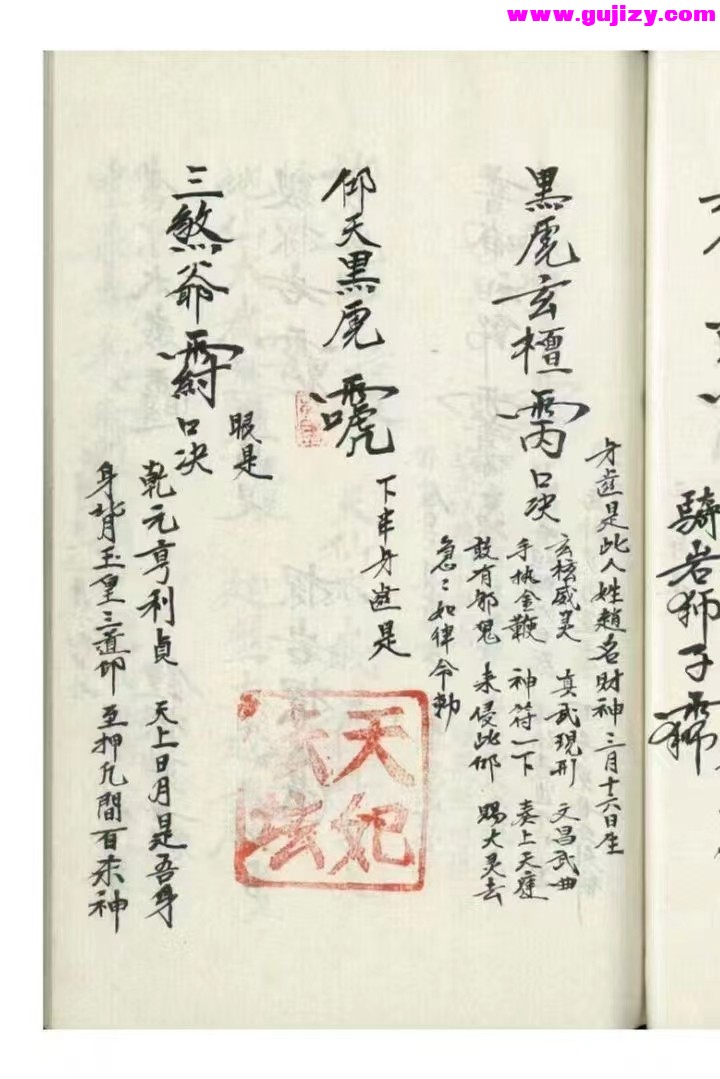 www.gujizy.com
騎岩狮子
黑虎玄檀 口决
身邊是此人姓趙名財神三月十六日生
玄坛威灵 真武現形 文昌武曲
手执金鞭 神符一下 奏上天庭
敢有邪鬼 来侵此仰 賜大灵去
急〻如律令勅
仰天黑虎
下半身邊是
三煞爺 口决
眼是
乾元亨利貞 天上日月是吾身
身背玉皇三道仰 至押凡間百未神
天妃
法